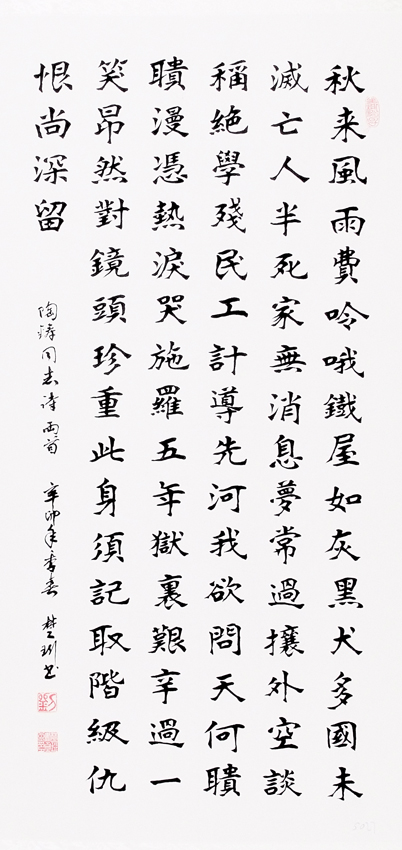 秋来風雨費吟哦鐵屋如灰黑犬多國未
滅亡人半死家無消息夢常過攘外空談
稱絶學殘民工計導先河我欲問天何聵
聵漫憑熱淚哭施羅五年獄裏艱辛過一
笑昂然對鏡頭珍重此身須記取階級仇
恨尚深留
陶鑄同志詩兩首 辛卯年春 楚書